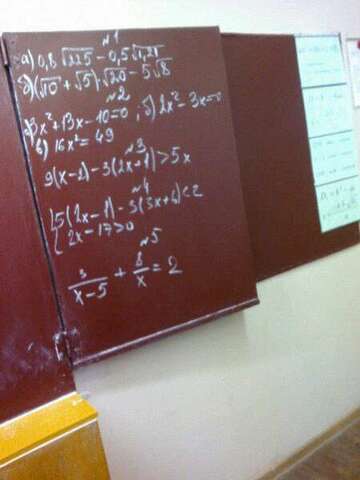 №1
а) 0,8√225 − 0,5√1,21
б) (√10 + √5)·√20 − 5√8
№2
а) 3x² + 13x − 10 = 0; б) 2x² − 3x = 0
в) 16x² = 49
№3
9(x − 2) − 3(2x + 1) > 5x
№4
{ 5(2x − 1) − 3(3x + 6) < 2
2x − 17 > 0
№5
3/(x − 5) + 8/x = 2